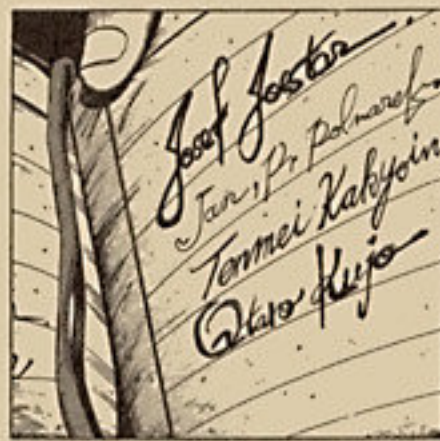 Josef Jostar
Jan, P, Polnaref
Tenmei Kakyoin
Qtaro Kujo